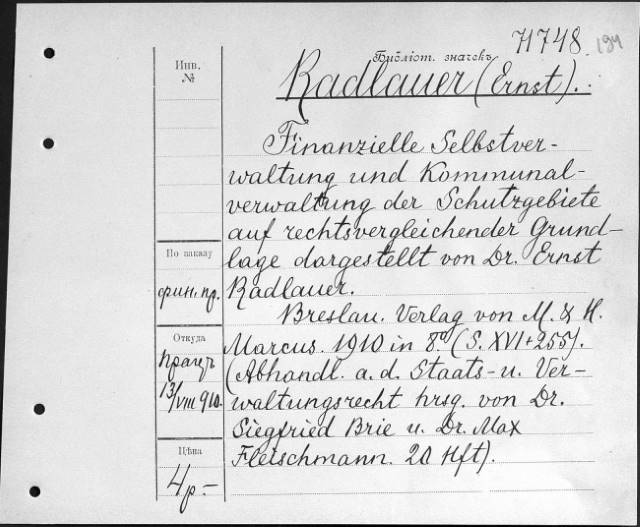 71748. 194
Библіот. значекъ
Radlauer (Ernst).
Инв.
№
Finanzielle Selbstver-
waltung und Kommunal-
verwaltung der Schutzgebiete
auf rechtsvergleichender Grund-
lage dargestellt von Dr. Ernst
Radlauer.
По заказу
фин. пр.
Breslau. Verlag von M. & H.
Marcus. 1910 in 8° (S. XVI+255).
(Abhandl. a. d. Staats- u. Ver-
waltungsrecht hrsg. von Dr.
Siegfried Brie u. Dr. Max
Fleischmann. 20 Hft).
Откуда
13/VIII 910.
Цѣна
4 р. —